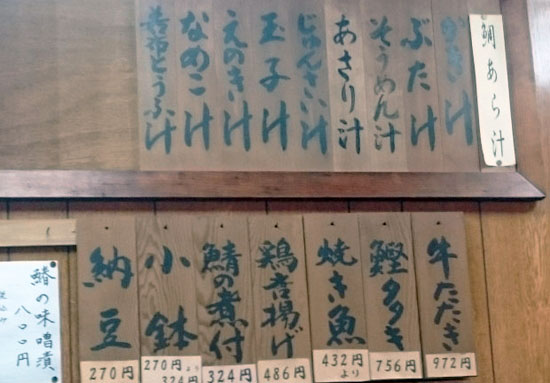 鯛あら汁
ぶた汁
そうめん汁
あさり汁
じゅんさい汁
玉子汁
えのき汁
なめこ汁
牛たたき
972円
鰹タタキ
756円
焼き魚
432円
より
鶏唐揚げ
486円
鯖の煮付
324円
小鉢
270円より
324円
納豆
270円
鰆の味噌漬
八〇〇円